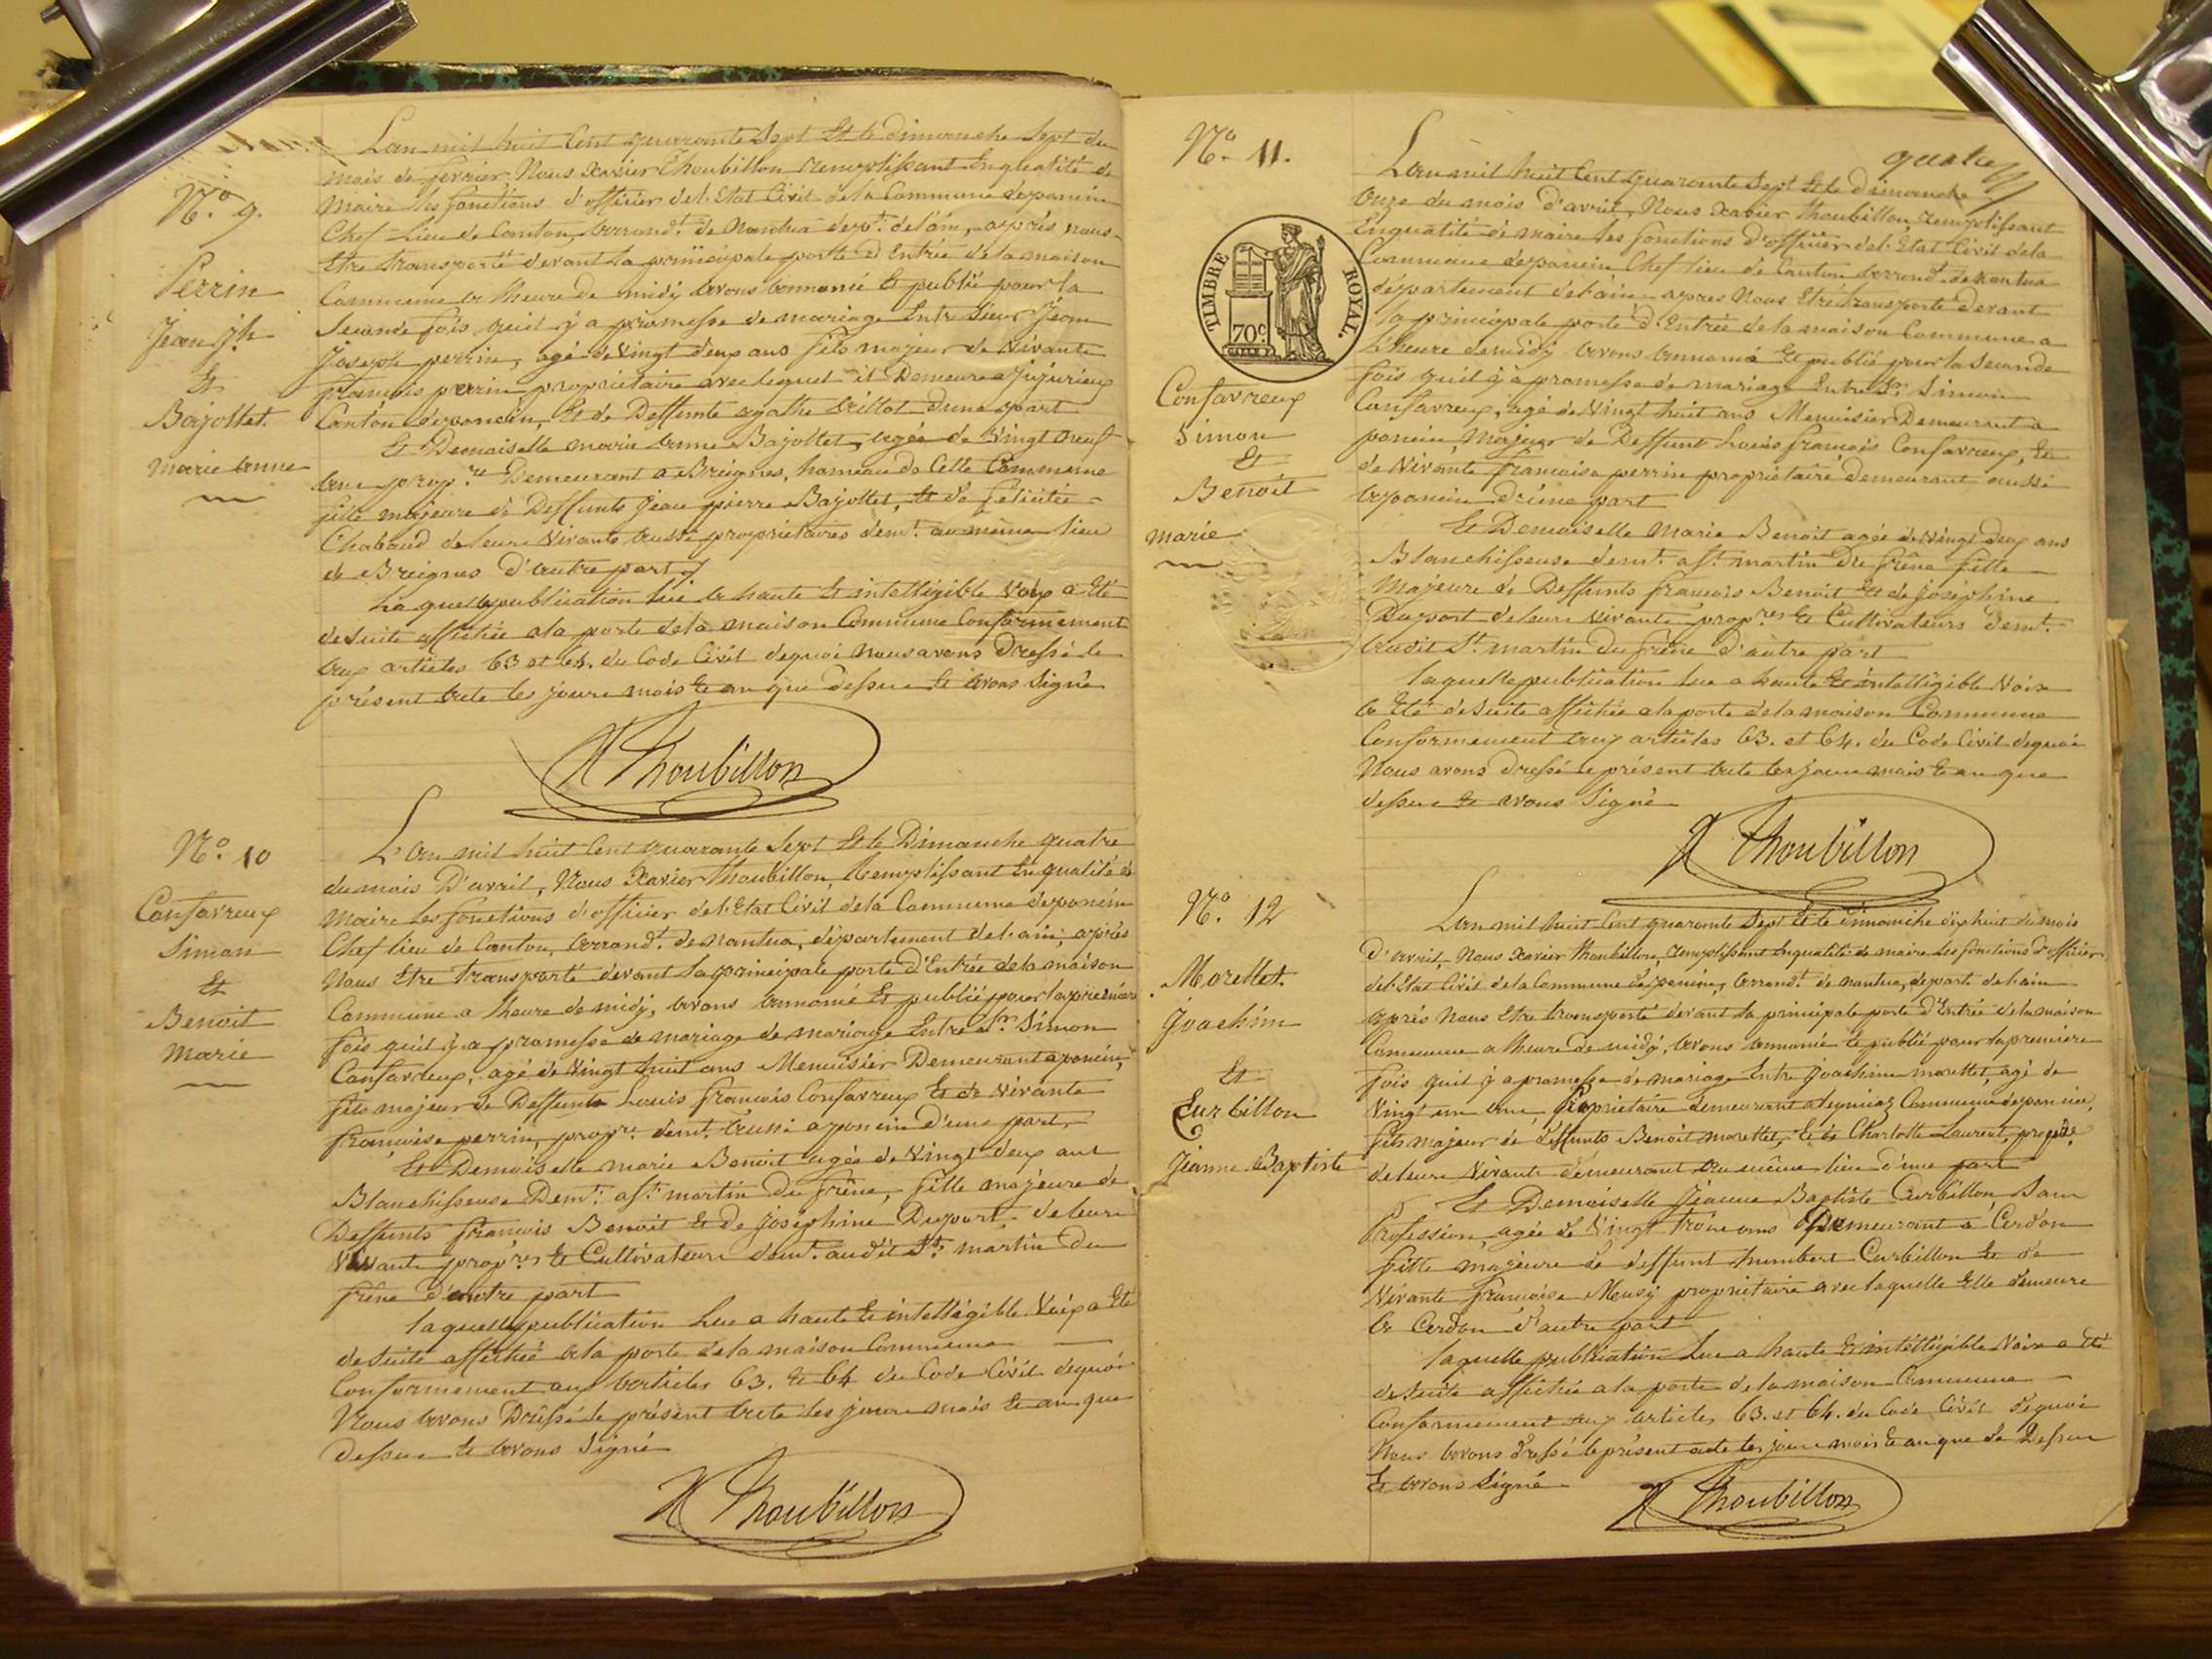 N.o 9.
Perrin
Jean jh
Et
Bajollet.
marie anne
L'an mil huit Cent quarante Sept Et le dimanche Sept du
mois de fevrier Nous Xavier Thoubillon remplissant En qualité de
Maire les fonctions d'officier de l'Etat Civil de la Commune de poncin
Chef Lieu de Canton, arrond.t de Nantua dep.t de l'ain, après nous
Etre transporté devant la principale porte d'Entrée de la maison
Commune a lheure de midy avons annoncé Et publié pour la
Seconde fois quil y a promesse de mariage Entre Sieur Jean
Joseph perrin, agé de Vingt deux ans fils majeur de Vivante
françois perrin propriétaire avec lequel il Demeure a Jujurieux
Canton de poncin, Et de Deffunte agathe Trillot d'une part
Et Demoiselle marie anne Bajollet, agée de Vingt neuf
ans prop.re Demeurant a Breignes, hameau de Cette Commune
fille majeure de Deffunts Jean pierre Bajollet, Et de félicitée
Chabaud de leurs Vivants aussi propriétaires dem.t au même lieu
de Breignes d'autre part
La quelle publication lue a haute Et intelligible Voix a Eté
de suite affichée a la porte de la maison Commune Conformément
aux articles 63 et 64. du Code Civil de quoi nous avons Dressé le
présent acte les jour mois Et an que dessus Et avons Signé
X Thoubillon
N.o 10
Confavreux
Simon
Et
Benoit
Marie
L'an mil huit Cent quarante Sept Et le Dimanche quatre
du mois D'avril, Nous Xavier Thoubillon, Remplissant En qualité de
Maire les fonctions d'officier de l'Etat Civil de la Commune de poncin
Chef lieu de Canton, arrond.t de Nantua, département de l'ain, après
Nous Etre transporté devant la principale porte d'Entrée de la maison
Commune a lheure de midy, avons annoncé Et publié pour la première
fois quil y a promesse de mariage de mariage Entre s.r Simon
Confavreux, agé de Vingt huit ans Menuisier Demeurant a poncin,
fils majeur de Deffunts Louis françois Confavreux Et de Vivante
françoise perrin, prop.re demt. aussi a poncin d'une part,
Et Demoiselle marie Benoit agée de Vingt deux ans
Blanchisseuse Dem.t a S.t martin du frêne, fille majeure de
Deffunts françois Benoit Et de Joséphine Duport, de leurs
Vivants prop.res Et Cultivateurs dem.t audit St. martin du
frêne d'autre part
laquelle publication Lue a haute Et intelligible Voix a Eté
de suite affichée a la porte de la maison Commune
Conformément aux articles 63. Et 64 du Code Civil de quoi
Nous avons Dressé le présent acte les jour mois Et an que
dessus Et avons Signé
X Thoubillon
quatre
N.o 11.
TIMBRE ROYAL.
70c.
Confavreux
Simon
Et
Benoit
marie
L'an mil huit Cent quarante Sept Et le Dimanche
Onze du mois d'avril, Nous Xavier Thoubillon, remplissant
En qualité de maire les fonctions d'officier de l'Etat Civil de la
Commune de poncin, Chef lieu de Canton arrond.t de Nantua
département de l'ain, après Nous Etre transporté devant
la principale porte d'Entrée de la maison Commune a
L'heure de midy avons annoncé Et publié pour la Seconde
fois quil y a promesse de mariage Entre Sr. Simon
Confavreux, agé de Vingt huit ans Menuisier Demeurant a
poncin, Majeur de Deffunt Louis françois Confavreux, Et
de Vivante françoise perrin propriétaire demeurant aussi
a poncin d'une part
Et Demoiselle Marie Benoit agée de Vingt deux ans
Blanchisseuse demt. a St. martin Du frêne fille
Majeure de Deffunts françois Benoit Et de Joséphine
Duport de leurs Vivants prop.res Et Cultivateurs demt.
audit St. martin du frêne d'autre part
laquelle publication lue a haute Et intelligible Voix
a Eté de suite affichée a la porte de la maison Commune
Conformément aux articles 63. et 64. du Code Civil de quoi
Nous avons dressé le présent acte les jour mois Et an que
dessus Et avons Signé
X Thoubillon
N.o 12
Morellet.
Joachim
Et
Curbillon
Jeanne Baptiste
L'an mil huit Cent quarante Sept Et le dimanche dix huit du mois
D'avril, Nous Xavier Thoubillon, remplissant En qualité de maire les fonctions d'officier
de l'Etat Civil de la Commune de poncin, arrond.t de Nantua, départ. de l'ain
après Nous Etre transporté devant la principale porte d'Entrée de la maison
Commune a lheure de midy, avons annoncé Et publié pour la première
fois quil y a promesse de mariage Entre Joachim morellet, agé de
Vingt un ans, propriétaire demeurant a Commune de poncin,
fils majeur de deffunts Benoit morellet, Et de Charlotte Laurent,
de leurs Vivants demeurant au même lieu d'une part
Et Demoiselle Jeanne Baptiste Curbillon Sans
Profession, agée de Vingt trois ans Demeurant a Cerdon
fille majeure de deffunt humbert Curbillon Et de
Vivante françoise Musy propriétaire avec laquelle Elle demeure
a Cerdon d'autre part
laquelle publication Lue a haute Et intelligible Voix a Eté
de suite affichée a la porte de la maison Commune
Conformément aux articles 63. et 64. du Code Civil de quoi
Nous avons dressé le présent acte les jour mois Et an que de Dessus
Et avons Signé
X Thoubillon